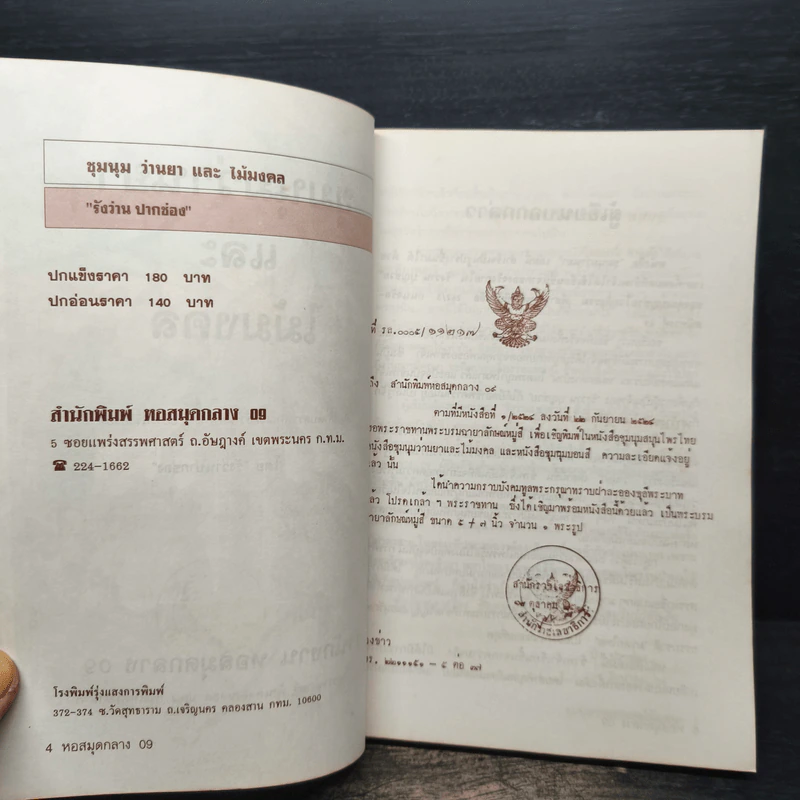 ชุมนุม ว่านยา และ ไม้มงคล
"รังว่าน ปากช่อง"
ปกแข็งราคา 180 บาท
ปกอ่อนราคา 140 บาท
สำนักพิมพ์ หอสมุดกลาง 09
5 ซอยแพร่งสรรพศาสตร์ ถ.อัษฎางค์ เขตพระนคร ก.ท.ม.
☎ 224-1662
โรงพิมพ์รุ่งแสงการพิมพ์
372-374 ซ.วัดสุทธาราม ถ.เจริญนคร คลองสาน กทม. 10600
4 หอสมุดกลาง 09
ที่ รล.๐๐๐๕/๑๑๒๑๗
ถึง สำนักพิมพ์หอสมุดกลาง ๐๙
ตามที่มีหนังสือที่ ๑/๒๕๒๘ ลงวันที่ ๒๒ กันยายน ๒๕๒๘
ขอพระราชทานพระบรมฉายาลักษณ์หมู่สี่ เพื่อเชิญพิมพ์ในหนังสือชุมนุมสมุนไพรไทย
หนังสือชุมนุมว่านยาและไม้มงคล และหนังสือชุมนุมบอนสี ความละเอียดแจ้งอยู่
แล้ว นั้น
ได้นำความกราบบังคมทูลพระกรุณาทราบฝ่าละอองธุลีพระบาท
แล้ว โปรดเกล้า ฯ พระราชทาน ซึ่งได้เชิญมาพร้อมหนังสือนี้ด้วยแล้ว เป็นพระบรม
ฉายาลักษณ์หมู่สี่ ขนาด ๕ + ๗ นิ้ว จำนวน ๑ พระรูป
สำนักราชเลขาธิการ
ตุลาคม
สำนักราชเลขาธิการ
โทร. ๒๒๑๑๑๕๑ - ๕ ต่อ ๓๗